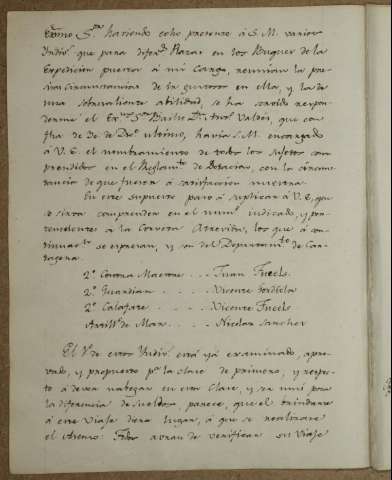 Exmo Sor haviendo echo presente á S. M. varios
Indivs que para diferts Plazas en los Buques de la
Expedicion puestos á mi Cargo, reunian la pre-
cisa circunstancia de su gustoso en ella, y la de
una sobresaliente abilidad, se ha servido respon-
derme el Exmo Sor Bailio Dn Anto Valdés, que con
fha de 30 de Dre ultimo, havia S. M. encargado
á V. E. el nombramiento de todos los sujetos com-
prendidos en el Reglamto de Dotacion, con la circuns-
tancia de que fueran á satisfaccion nuestra.
En este supuesto paso á suplicar á V. E, que
se sirva comprender en el numo indicado, y per-
tenecientes á la Corveta Atrevida, los que á con-
tinuacn se expresan, y son del Departamto de Car-
tagena.
2º Contra Maestre . . . Juan
2º Guardian . . . Vicente
2º Calafate . . . Vicente
Artillo de Mar . . . Nicolas Sanchez
El 1º de estos Indivs está yá examinado, apro-
vado, y propuesto pa la clase de primero, y respec-
to á devea navegar en esta clase, y sea mui poca
la diferencia de sueldos, parece, que el brindarse
á este viaje diera lugar, á que se realizase
el Asenso: Todos avran de verificar su Viaje